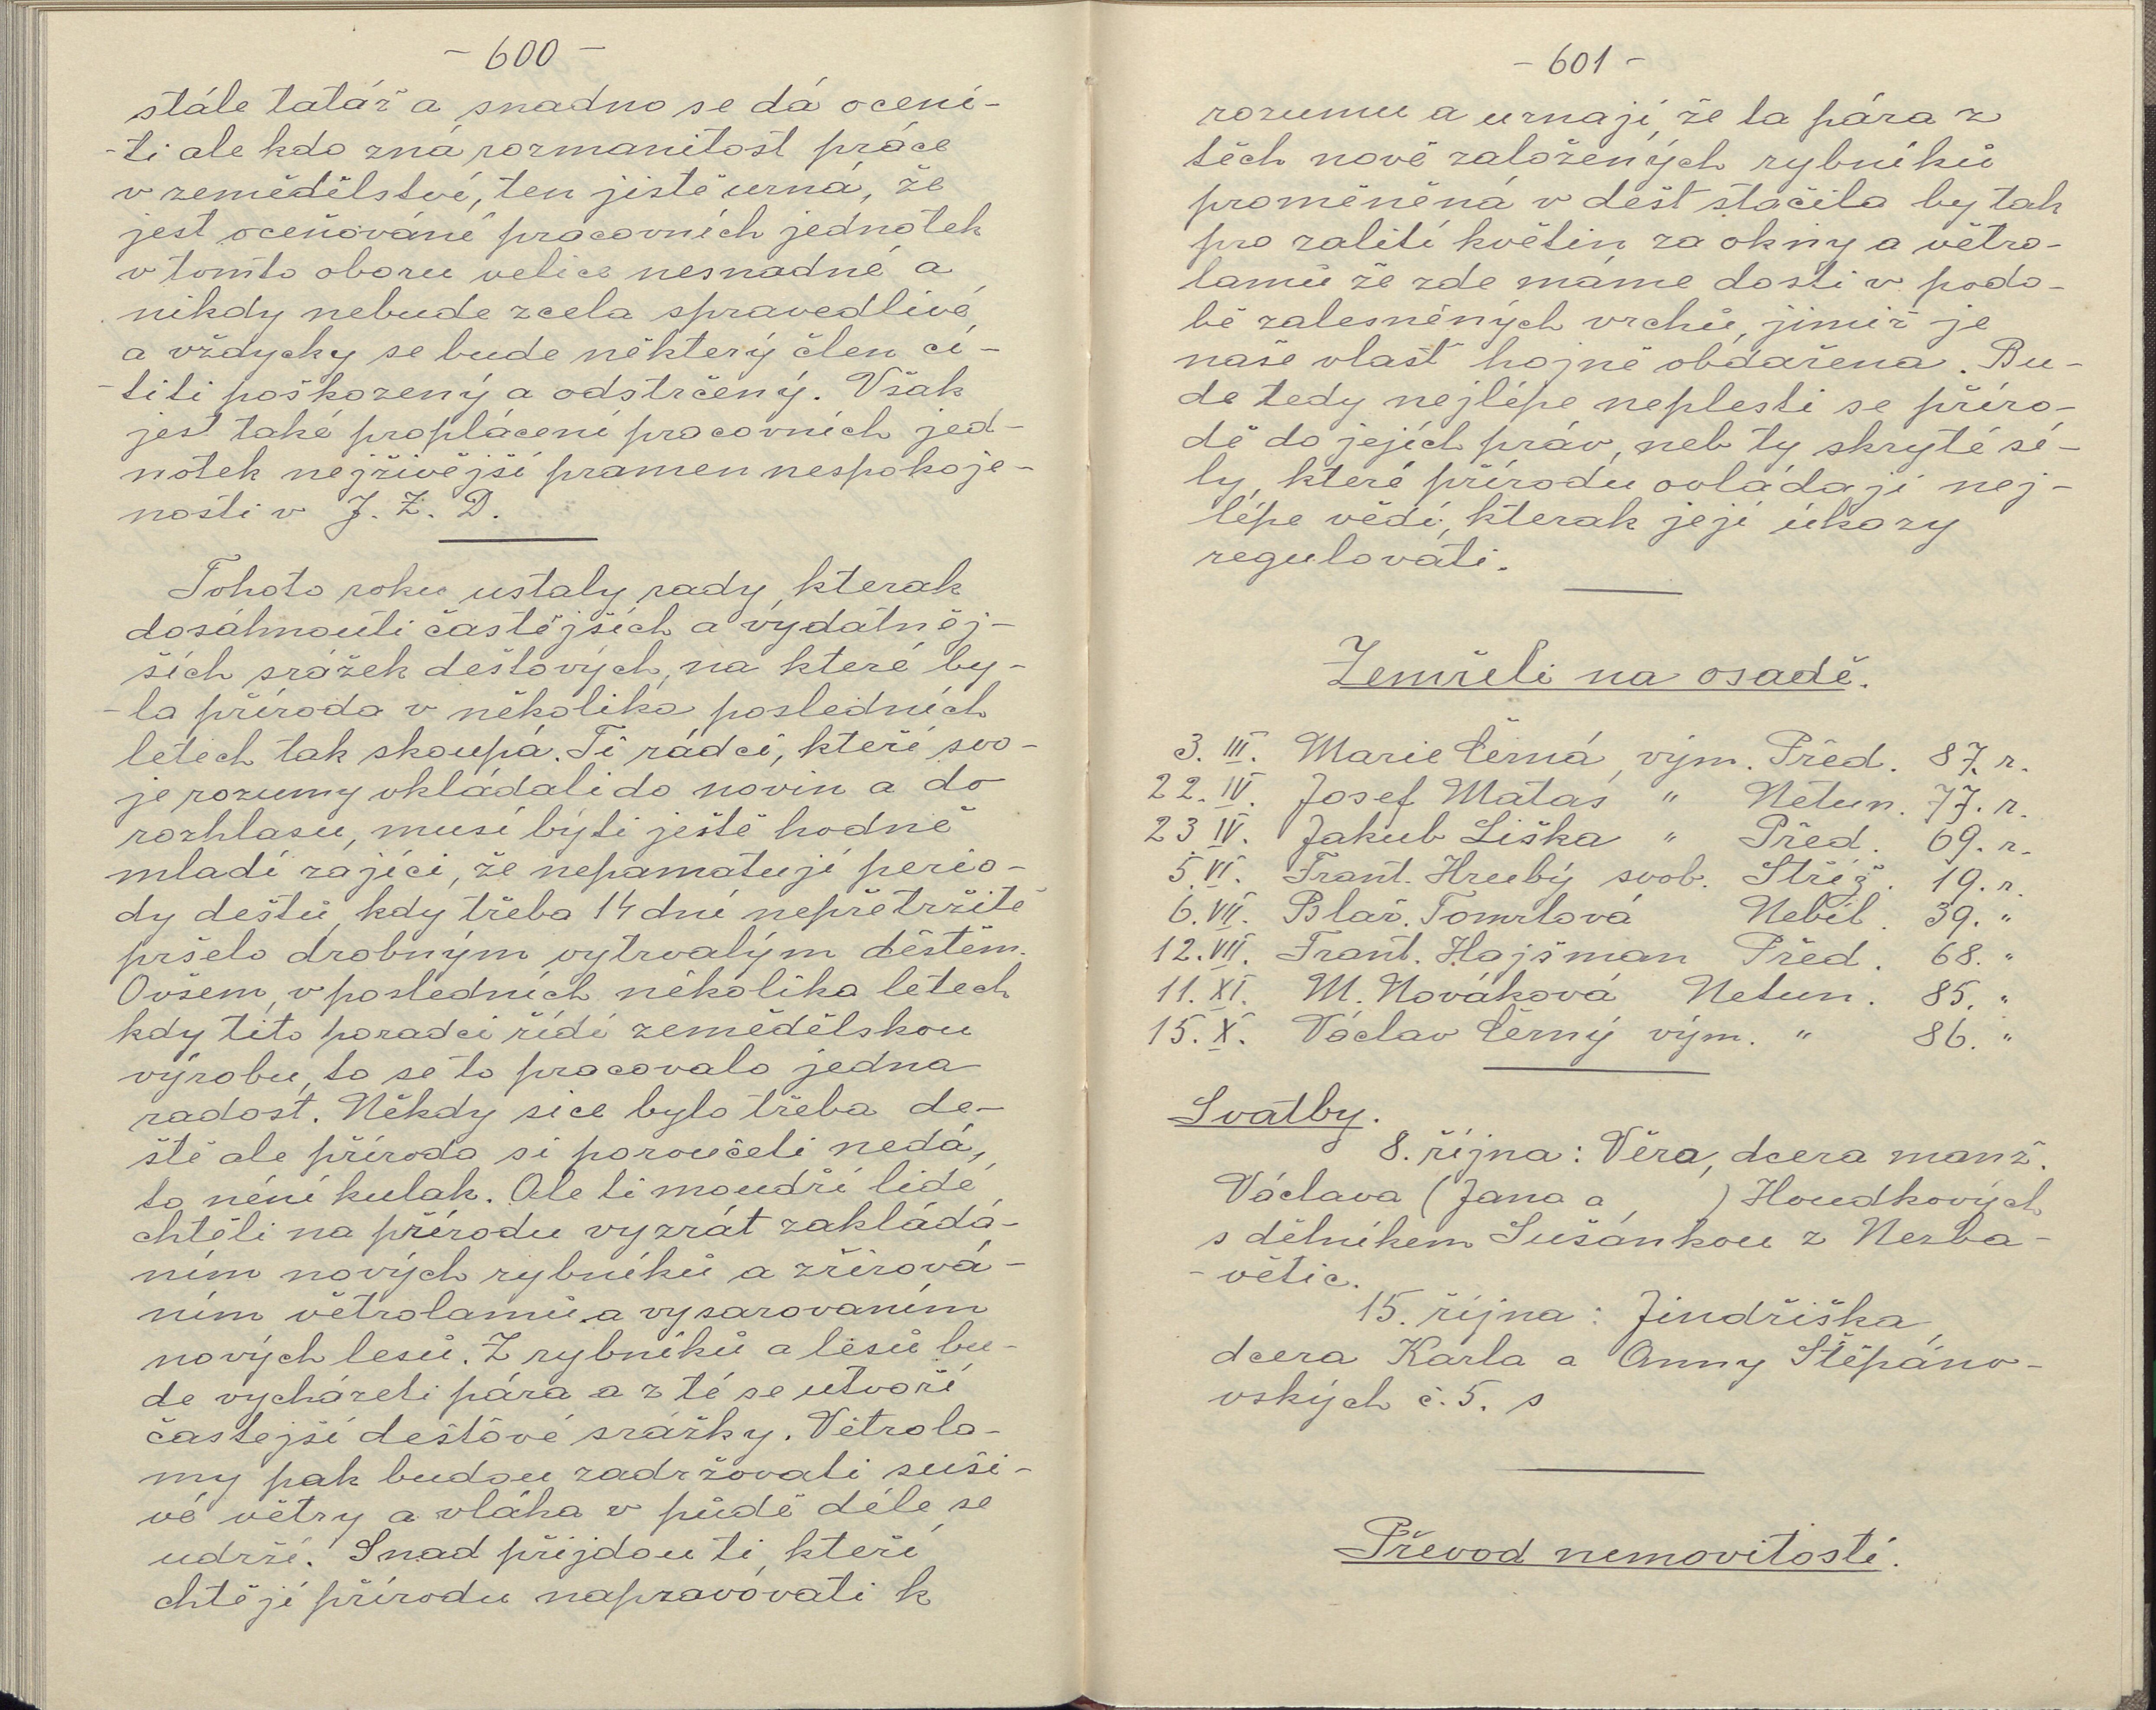 - 600 -
stále tatáž a snadno se dá ocení-
-ti ale kdo zná rozmanitost práce
v zemědělství, ten jistě uzná, že
jest oceňování pracovních jednotek
v tomto oboru velice nesnadné a
nikdy nebude zcela spravedlivé,
a vždycky se bude některý člen cí-
-titi poškozený a odstrčený. Však
jest také proplácení pracovních jed-
notek nejživější pramen nespokoje-
nosti v J. Z. D.
Tohoto roku ustaly rady, kterak
dosáhnouti častějších a vydatněj-
ších srážek dešťových, na které by-
-la příroda v několika posledních
letech tak skoupá. Ti rádci, kteří svo-
je rozumy vkládali do novin a do
rozhlasu, musí býti ještě hodně
mladí zajíci, že nepamatují perio-
dy dešťů, kdy třeba 14 dní nepřetržitě
pršelo drobným vytrvalým deštěm.
Ovšem, v posledních několika létech
kdy tito poradci řídí zemědělskou
výrobu, to se to pracovalo jedna
radost. Někdy sice bylo třeba de-
ště ale příroda si poroučeti nedá,
to není kulak. Ale ti moudří lidé
chtěli na přírodu vyzrát zakládá-
ním nových rybníků a zřizová-
ním větrolamů a vysazovaním
nových lesů. Z rybníků a lesů bu-
de vycházeti pára a z té se utvoří
častejší dešťové srážky. Větrola-
my pak budou zadržovati suši-
vé větry a vláha v půdě déle se
udrží. Snad přijdou ti, kteří
chtějí přírodu napravovati k
- 601 -
rozumu a uznají, že ta pára z
těch nově založených rybníků
proměněná v déšť stačila by tak
pro zalití květin za okny a větro-
lamů že zde máme dosti v podo-
bě zalesněných vrchů, jimiž je
naše vlast hojně obdařena. Bu-
de tedy nejlépe neplesti se příro-
dě do jejích práv, neb ty skryté sí-
ly, které přírodu ovládají nej-
lépe vědí, kterak její úkazy
regulovati.
Zemřeli na osadě.
3. III. Marie Černá, vým. Před. 87. r.
22. IV. Josef Matas " Netun. 77. r.
23 IV. Jakub Liška " Před. 69. r.
5. VI. Frant. Hrubý svob. Střiž. 19. r.
6. VII. Blaž. Tomrlová Nebil. 39. "
12. VII. Frant. Hajšman Před. 68. "
11. XI. M. Nováková Netun. 85. "
15. X. Václav Černý vým. " 86. "
Svatby.
8. října: Věra, dcera manž.
Václava (Jana a ) Houdkových
s dělníkem Sušánkou z Nezba-
-větic.
15. října: Jindřiška,
dcera Karla a Anny Štěpáno-
vských č. 5. s
Převod nemovitostí.